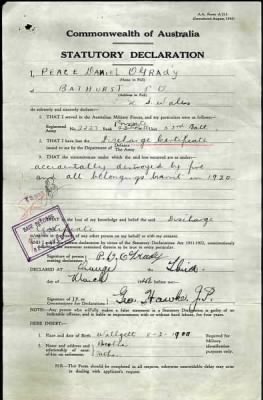 A.A. Form A.113
Commonwealth of Australia
STATUTORY DECLARATION
I, PEACE DANIEL O'GRADY
(Name in Full)
of BATHURST P O
(Address in Full)
N. S. Wales
do solemnly and sincerely declare:—
1. THAT I served in the Australian Military Forces, and my particulars were as follows:—
Private
Registered
Army No. 3227 53rd Batt
2. THAT I have lost the Discharge Certificate
issued to me by the Department of Defence
The Army
3. THAT the circumstances under which the loss occurred are as under:—
accidentally destroyed by fire
and all belongings burnt in 1920.
to the best of my knowledge and belief the said Discharge
Certificate
by any other person on my behalf or with my consent.
by virtue of the Statutory Declarations Act 1911-1922, conscientiously
statements contained therein to be true in every particular.
Signature of person
making declaration P. D. O'Grady
DECLARED AT Orange this Third
day of March
before me,
Signature of J.P. or
Commissioner for Declarations Geo. Hawke J.P.
NOTE.—Any person who wilfully makes a false statement in a Statutory Declaration is guilty of an
indictable offence, and is liable to imprisonment, with or without hard labour, for four years.
HERE INSERT—
1. Place and date of Birth Walgett
2. Name and address and
relationship of next
of kin on enlistment
Required for
Military
identification
purposes
only.
NB.—This Form should be completed in all respects, otherwise unavoidable delay may occur
in dealing with applicant's request.